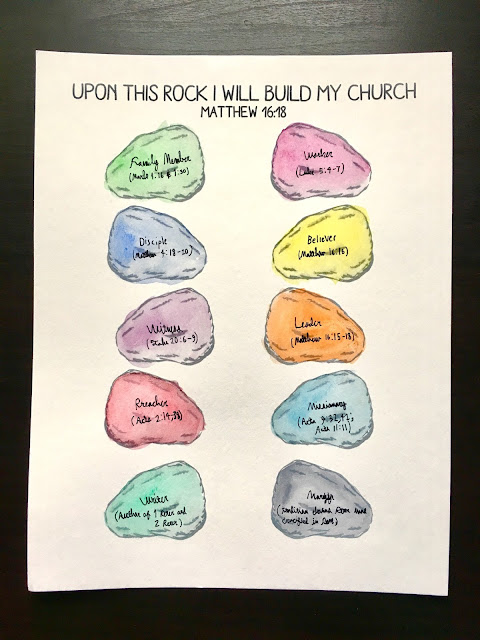 UPON THIS ROCK I WILL BUILD MY CHURCH
MATTHEW 16:18
Family Member
(Mark 1:16 & 1:30)
Worker
(Luke 5:4-7)
Disciple
(Matthew 4:18-20)
Believer
(Matthew 16:16)
Witness
20:6-9)
Leader
(Matthew 16:15-18)
Preacher
(Acts 2:14,
Missionary
(Acts 9:32,42;
Acts 11:11)
Writer
(Author of 1 Peter and
2 Peter)
Martyr
(Tradition Peter was
crucified in